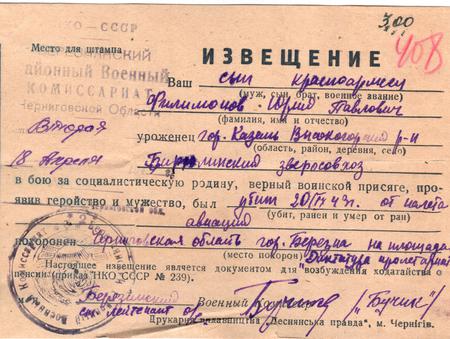 НКО - СССР
300
408
Место для штампа
Районный Военный
КОМИССАРИАТ
Черниговской Области
ИЗВЕЩЕНИЕ
Ваш сын красноармеец
(муж, сын, брат, военное звание)
Филимонов Юрид Павлович
(фамилия, имя и отчество)
Второя
уроженец гор. Казань Высокогорский р-н
(область, район, деревня, село)
18 Апреля
зверосовхоз
в бою за социалистическую родину, верный воинской присяге, про-
явив геройство и мужество, был убит 20/IV 43 г. от налета
(убит, ранен и умер от ран)
авиации
похоронен Черниговская область гор. Березна на площаде
(место похорон) "Диктатура пролетариат
Настоящее извещение является документом для возбуждения ходатайства о
пенсии (приказ НКО СССР № 239).
Березнинский Военный
ст. лейтенант Бучик /"Бучик"/
Друкарня видавництва „Деснянська правда", м. Чернігів.